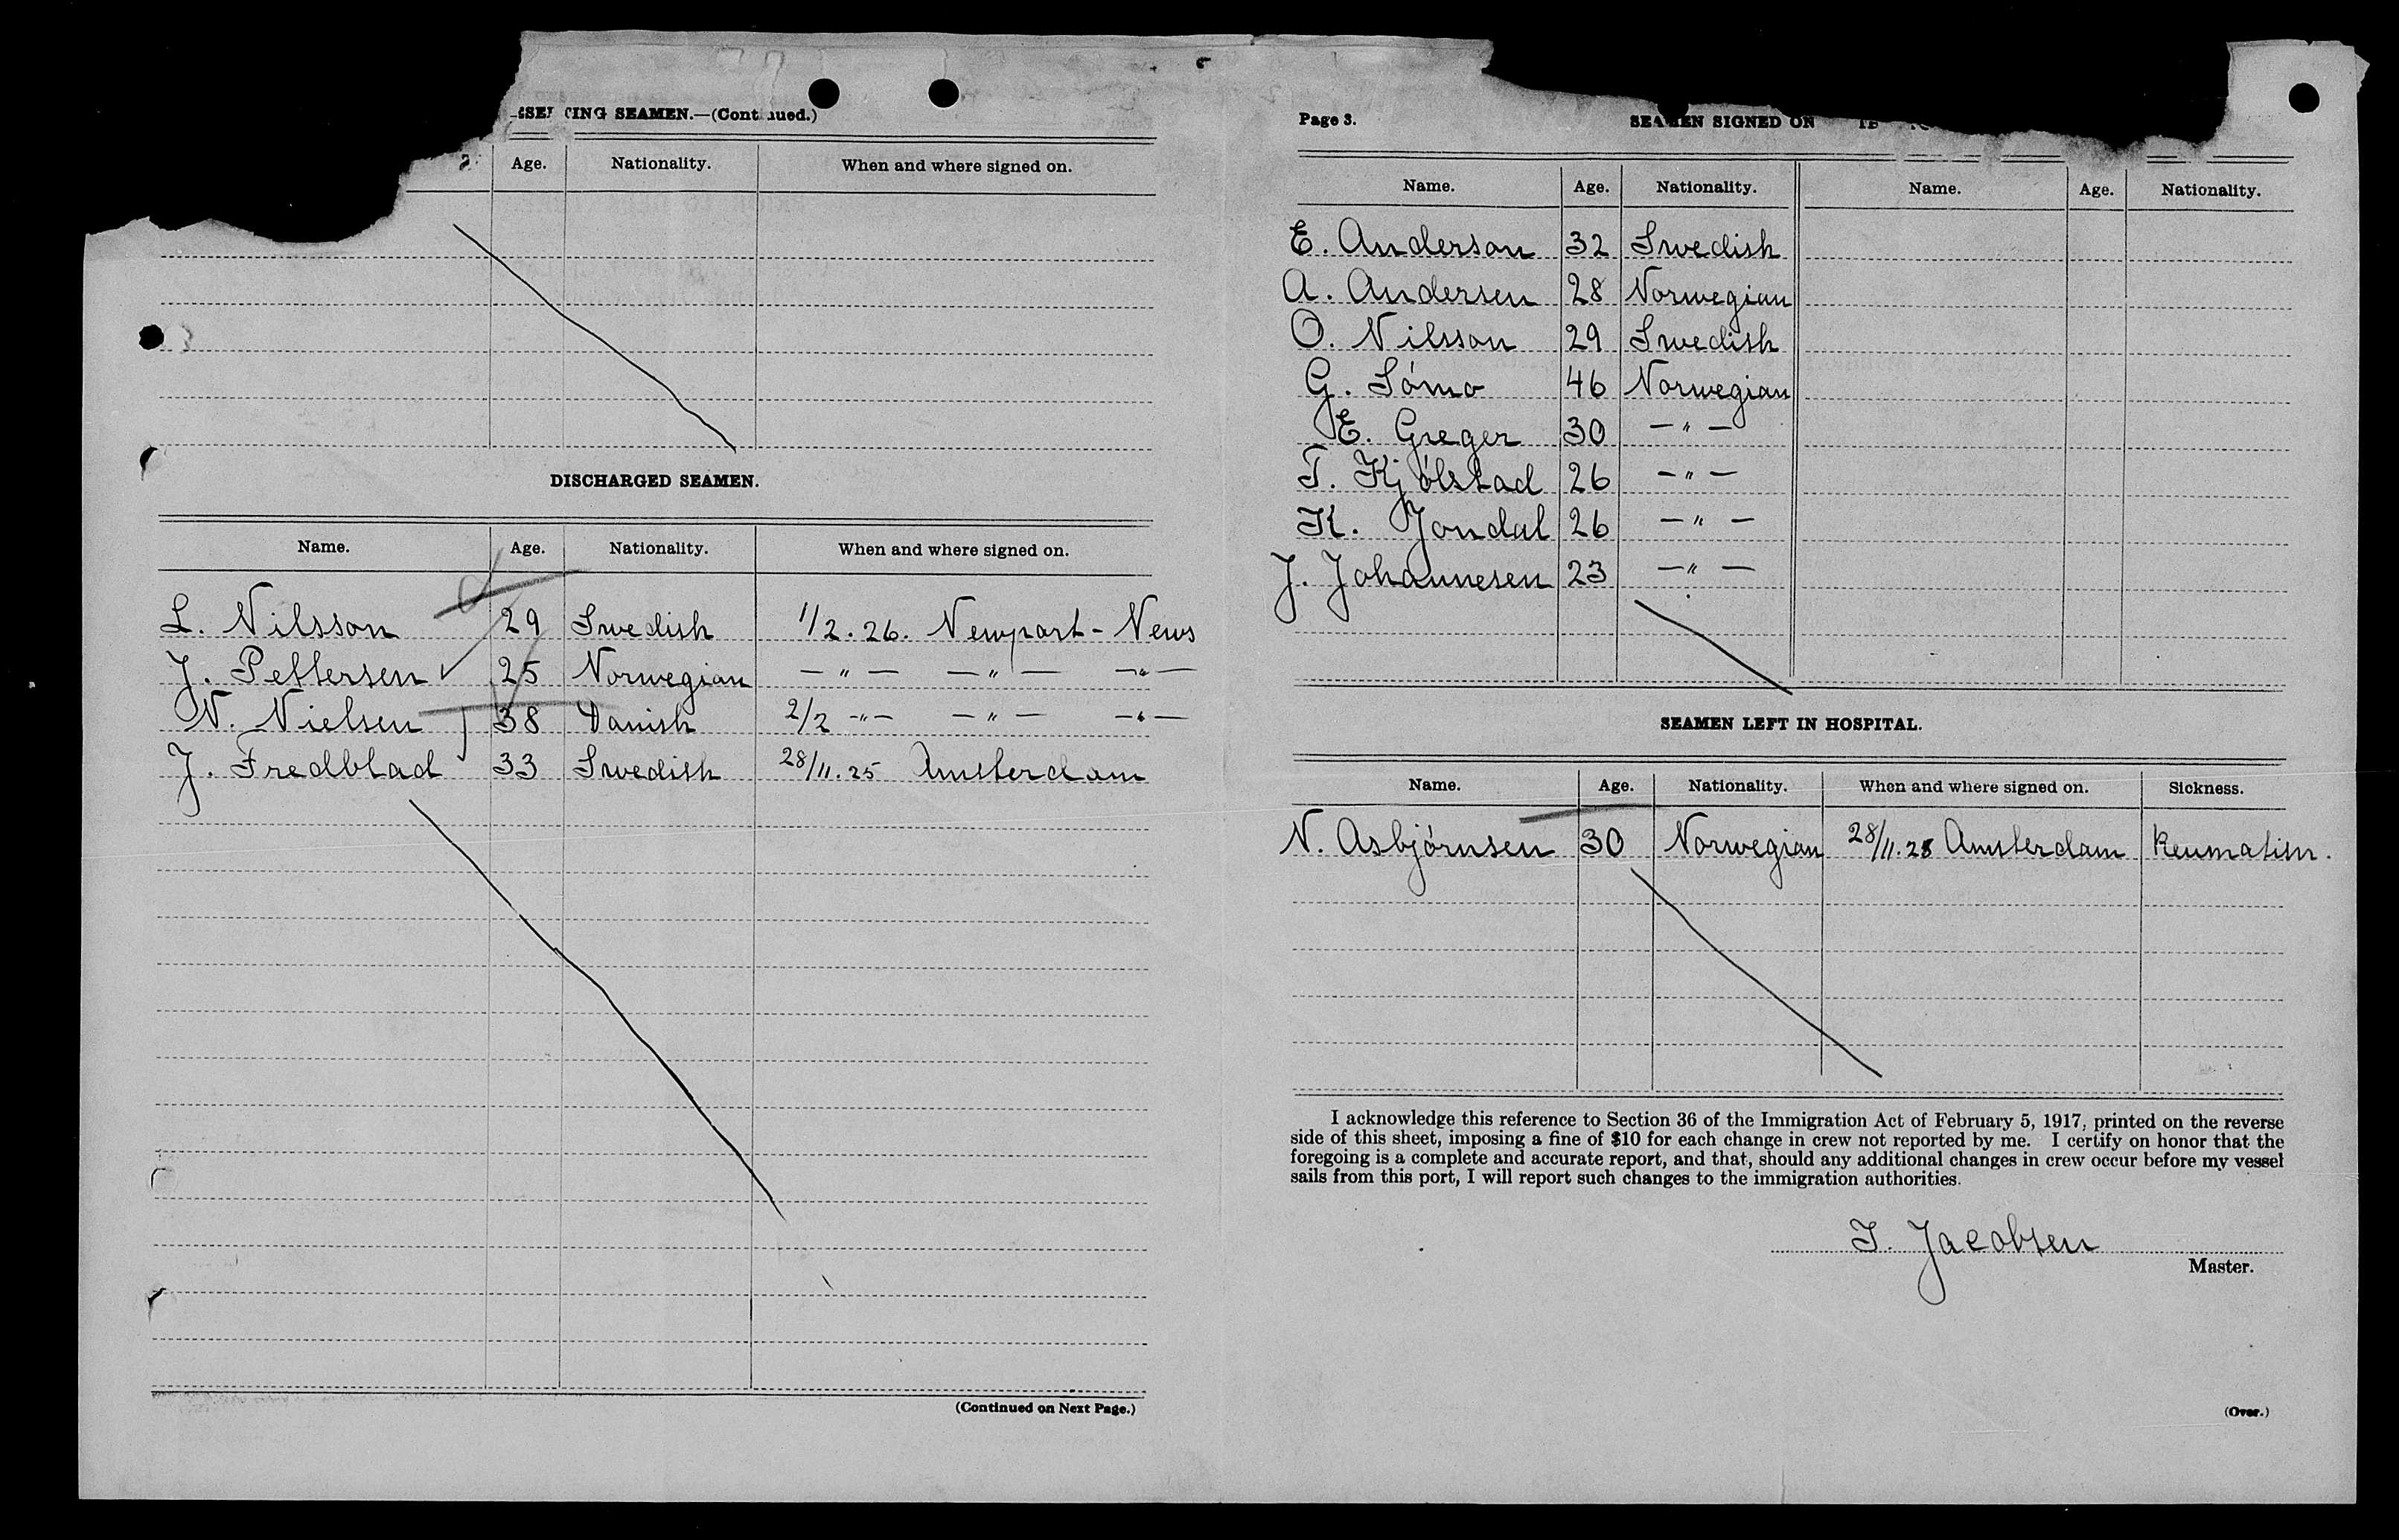 CING SEAMEN.—(Cont nued.)
Age. Nationality. When and where signed on.
DISCHARGED SEAMEN.
Name. Age. Nationality. When and where signed on.
L. Nilsson 29 Swedish 1/2.26. Newport-News
J. Pettersen 25 Norwegian —〃— —〃— —〃—
N. Nielsen 38 Danish 2/2 —〃— —〃— —〃—
J. Fredblad 33 Swedish 28/11.25 Amsterdam
(Continued on Next Page.)
Page 3.
SEAMEN SIGNED ON
Name. Age. Nationality. Name. Age. Nationality.
E. Anderson 32 Swedish
A. Andersen 28 Norwegian
O. Nilsson 29 Swedish
G. Sómo 46 Norwegian
E. Greger 30 —〃—
T. Kjólstad 26 —〃—
K. Jondal 26 —〃—
J. Johannesen 23 —〃—
SEAMEN LEFT IN HOSPITAL.
Name. Age. Nationality. When and where signed on. Sickness.
N. Asbjórnsen 30 Norwegian 28/11.25 Amsterdam Reumatism.
I acknowledge this reference to Section 36 of the Immigration Act of February 5, 1917, printed on the reverse
side of this sheet, imposing a fine of $10 for each change in crew not reported by me. I certify on honor that the
foregoing is a complete and accurate report, and that, should any additional changes in crew occur before my vessel
sails from this port, I will report such changes to the immigration authorities.
T. Jacobsen
Master.
(Over.)